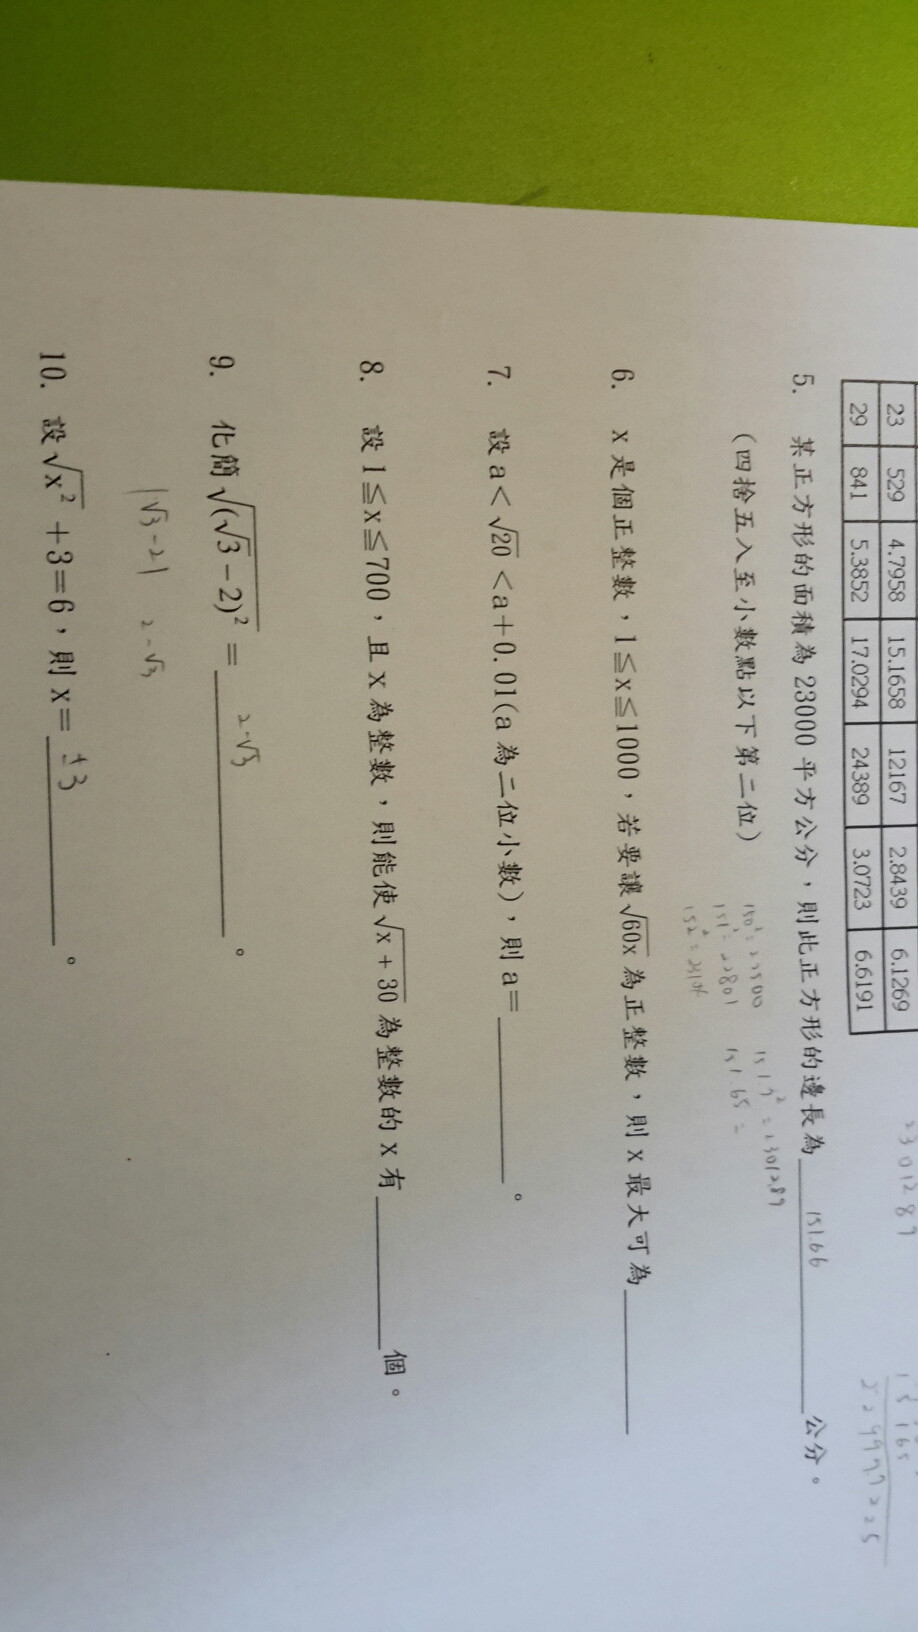 23 529 4.7958 15.1658 12167 2.8439 6.1269
29 841 5.3852 17.0294 24389 3.0723 6.6191
5. 某正方形的面積為 23000 平方公分,則此正方形的邊長為 151.66 公分。
(四捨五入至小數點以下第二位)
150²=22500
151²=22801
152²=23104
151.7²=23012.89
151.65=
6. x 是個正整數,1≦x≦1000,若要讓√60x 為正整數,則 x 最大可為
7. 設 a<√20<a+0.01(a 為二位小數),則 a= 。
8. 設 1≦x≦700,且 x 為整數,則能使√x+30 為整數的 x 有 個。
9. 化簡√(√3-2)² = 2-√3 。
|√3-2| 2-√3
10. 設√x² +3=6,則 x= ±3 。